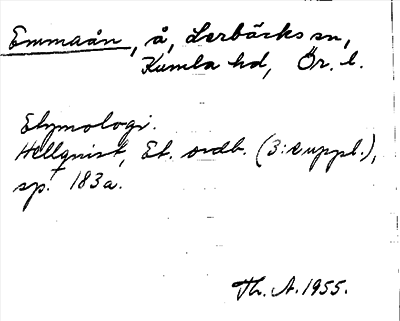 Emmaån, å, Lerbäcks sn,
Kumla hd, Ör. l.
Etymologi.
Hellquist, Et. ordb. (3:e uppl.),
sp. 183a.
Th. A. 1955.